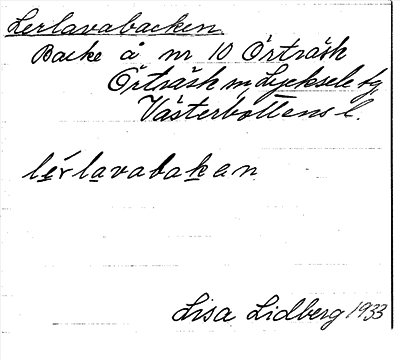 Lerlavabacken
Backe å nr 10 Örträsk
Örträsk sn, Lycksele tg,
Västerbottens l.
lérlavabakan
Lisa Lidberg 1933